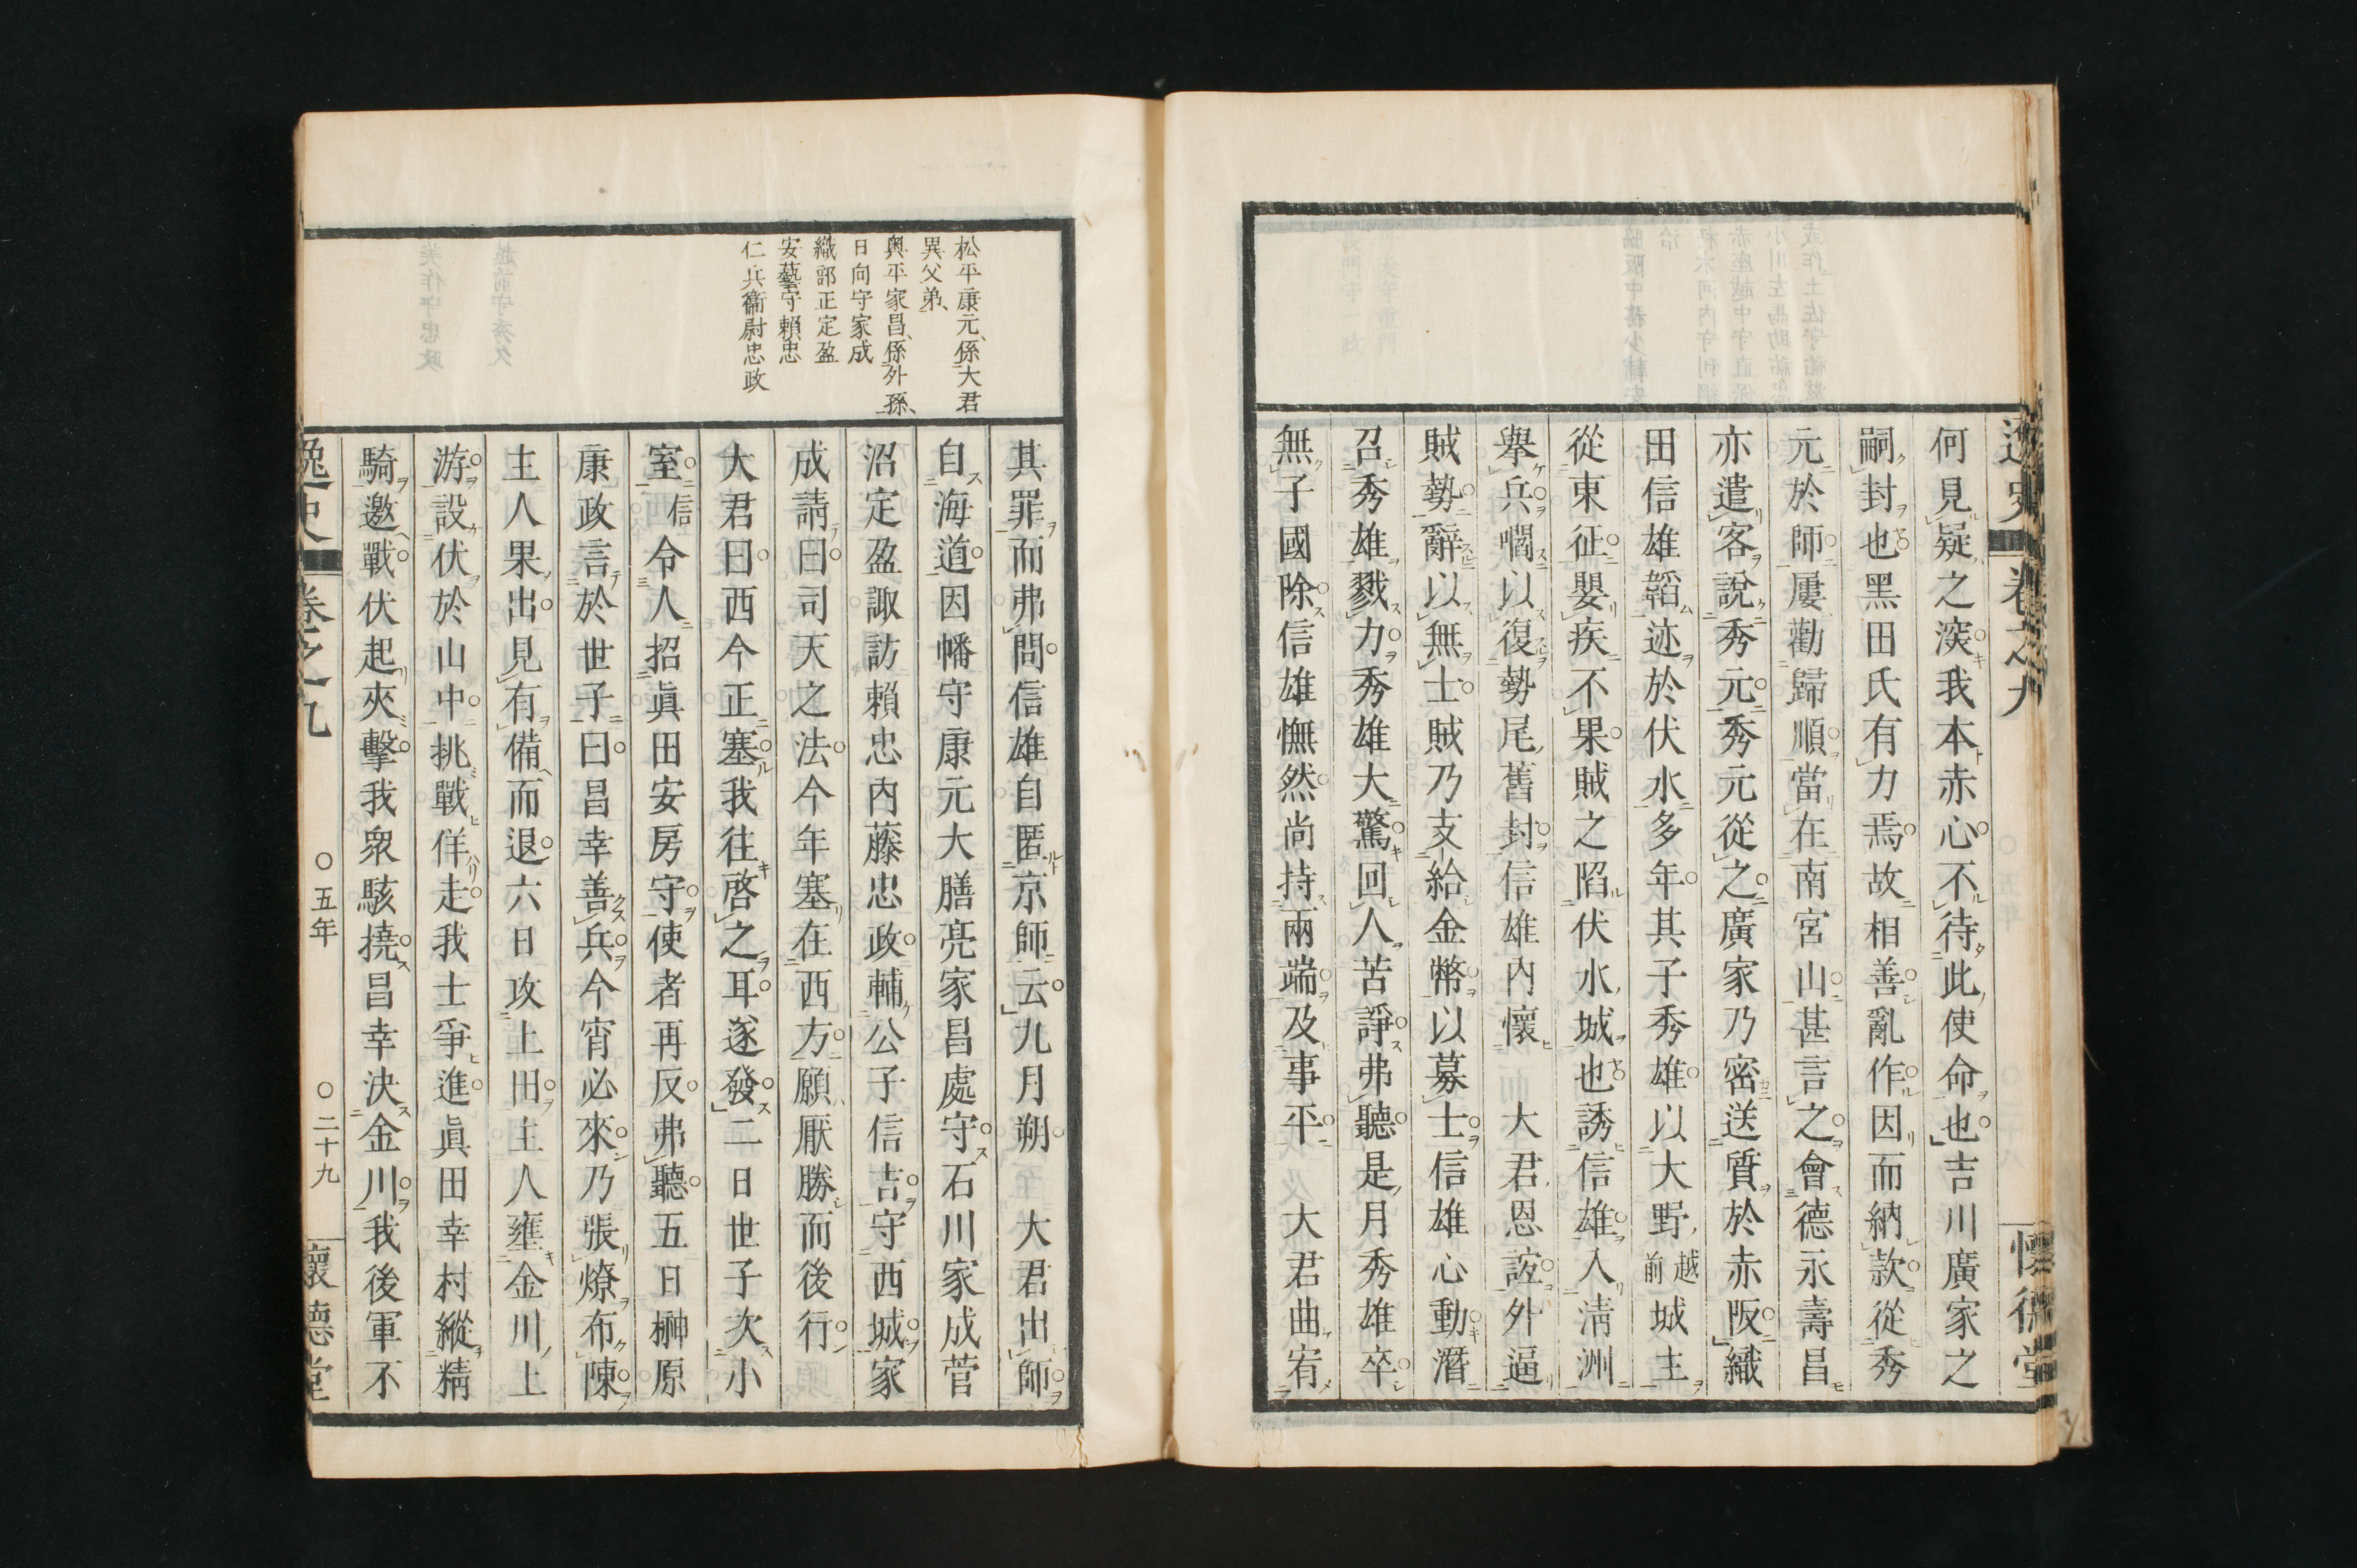 逸史
卷之九
懷德堂
何見疑之深我本赤心不待此使命也吉川廣家之
嗣封也黑田氏有力焉故相善亂作因而納款從秀
元於師屢勸歸順當在南宮山甚言之會德永壽昌
亦遣客說秀元秀元從之廣家乃密送質於赤阪織
田信雄韜迹於伏水多年其子秀雄以大野越前城主
從東征嬰疾不果賊之陷伏水城也誘信雄入淸洲
擧兵啗以復勢尾舊封信雄內懷 大君恩誼外逼
賊勢辭以無士賊乃支給金幣以募士信雄心動潛
召秀雄戮力秀雄大驚回人苦諍弗聽是月秀雄卒
無子國除信雄憮然尚持兩端及事平 大君曲宥
松平康元、係大君
異父弟、
奧平家昌、係外孫、
日向守家成
織部正定盈
安藝守賴忠
仁兵衞尉忠政
其罪而弗問信雄自匿京師云九月朔 大君出師
自海道因幡守康元大膳亮家昌處守石川家成菅
沼定盈諏訪賴忠內藤忠政輔公子信吉守西城家
成請曰司天之法今年塞在西方願厭勝而後行
大君曰西今正塞我往啓之耳遂發二日世子次小
室信令人招眞田安房守使者再反弗聽五日榊原
康政言於世子曰昌幸善兵今宵必來乃張燎布陳
主人果出見有備而退六日攻上田主人壅金川上
游設伏於山中挑戰佯走我士爭進眞田幸村縱精
騎邀戰伏起夾擊我眾駭撓昌幸決金川我後軍不
逸史
卷之九
○五年
○二十九
懷德堂